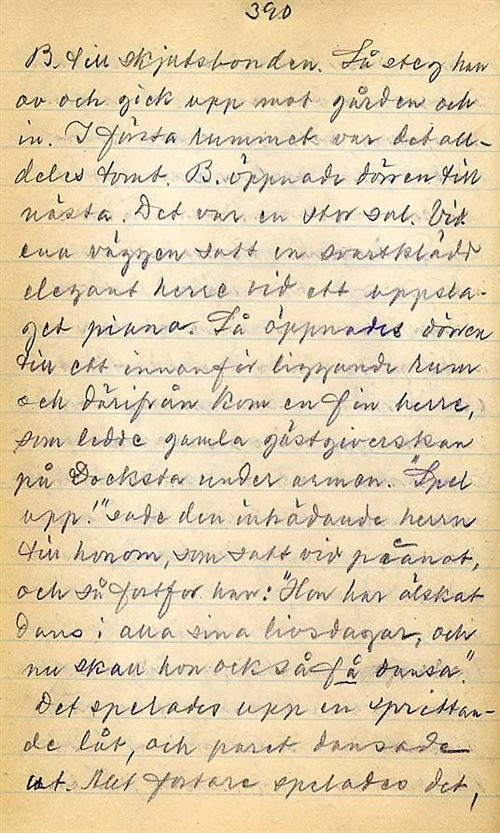 390
B. till skjutsbonden. Så steg han
av och gick upp mot gården och
in. I första rummet var det all-
deles tomt. B. öppnade dörren till
nästa. Det var en stor sal. Vid
ena väggen satt en svartklädd
elegant herre vid ett uppsla-
get piano. Så öppnades dörren
till ett innanför liggande rum
och därifrån kom en fin herre,
som ledde gamla gästgiverskan
på Docksta under armen. "Spel
upp!" sade den inträdande herrn
till honom, som satt vid pianot,
och så fortfor han: "Hon har älskat
dans i alla sina livsdagar, och
nu skall hon också få dansa".
Det spelades upp en sprittan-
de låt, och paret dansade
ut. Allt fortare spelades det,